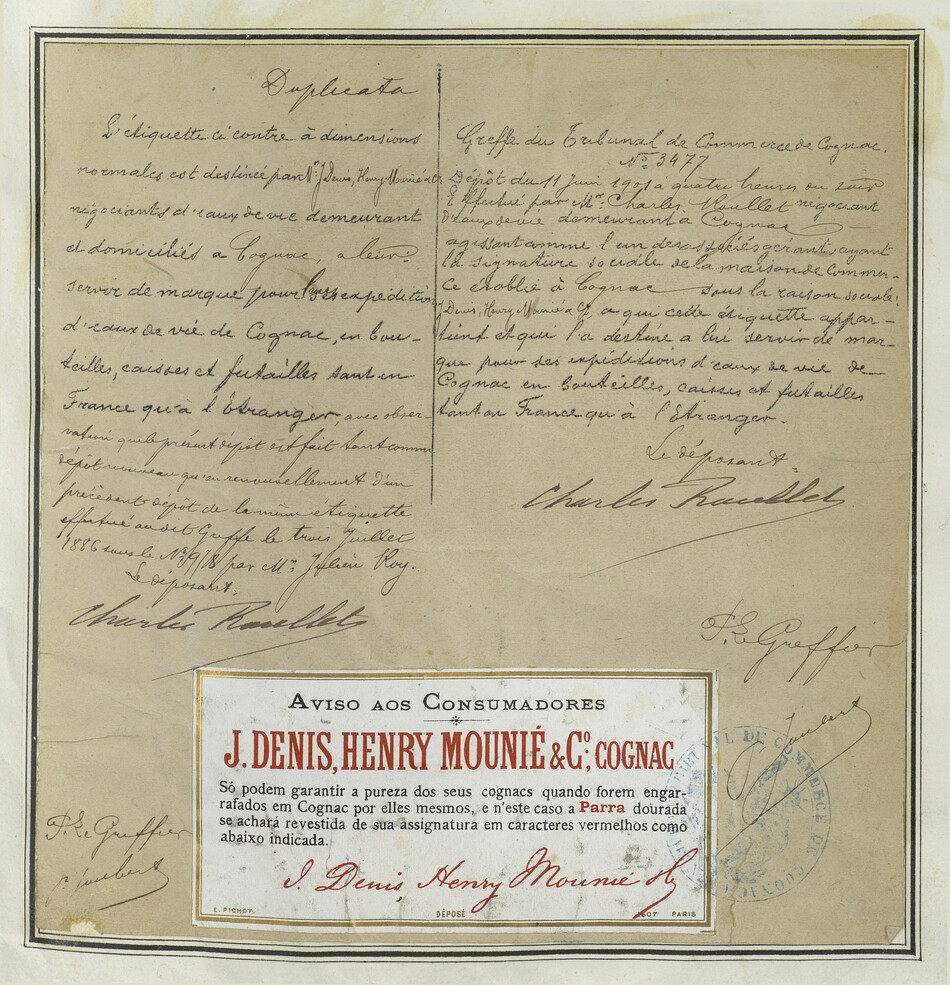 Duplicata
L'étiquette ci contre à dimensions
normales est destinée par Mrs J. Denis, Henry Mounié & Co
négociants d'eaux de vie demeurant
et domiciliés à Cognac, a leur
servir de marque pour leurs expéditions
d'eaux de vie de Cognac, en bou-
teilles, caisses et futailles tant en
France qu'à l'Etranger, avec obser-
vation que le présent dépôt est fait tant comme
dépôt nouveau qu'en renouvellement d'un
précédent dépôt de la même étiquette
effectué au dit Greffe le trois Juillet
1886 sous le No 978 par Mr Julien Roy.
Le déposant:
Charles Roullet
P. Le Greffier
Joubert
Greffe du Tribunal de Commerce de Cognac.
No 3477
Dépôt du 11 Juin 1901 à quatre heures du soir
Effectué par Mr. Charles Roullet négociant
d'eaux de vie demeurant à Cognac
agissant comme l'un des associés gérants ayant
la signature sociale de la maison de Commer-
ce établie à Cognac sous la raison sociale:
J. Denis, Henry Mounié & Co, a qui cette étiquette appar-
tient et qui l'a destiné a lui servir de mar-
que pour ses expéditions d'eaux de vie de
Cognac en bouteilles, caisses et futailles
tant en France qu'à l'Etranger.
Le déposant
Charles Roullet
P. Le Greffier
Joubert
TRIBUNAL DE COMMERCE DE COGNAC
AVISO AOS CONSUMADORES
J. DENIS, HENRY MOUNIÉ & Co; COGNAC
Só podem garantir a pureza dos seus cognacs quando forem engar-
rafados em Cognac por elles mesmos, e n'este caso a Parra dourada
se achará revestida de sua assignatura em caracteres vermelhos como
abaixo indicada.
J. Denis, Henry Mounié & Co
E. PICHOT.
DÉPOSÉ
1607 PARIS